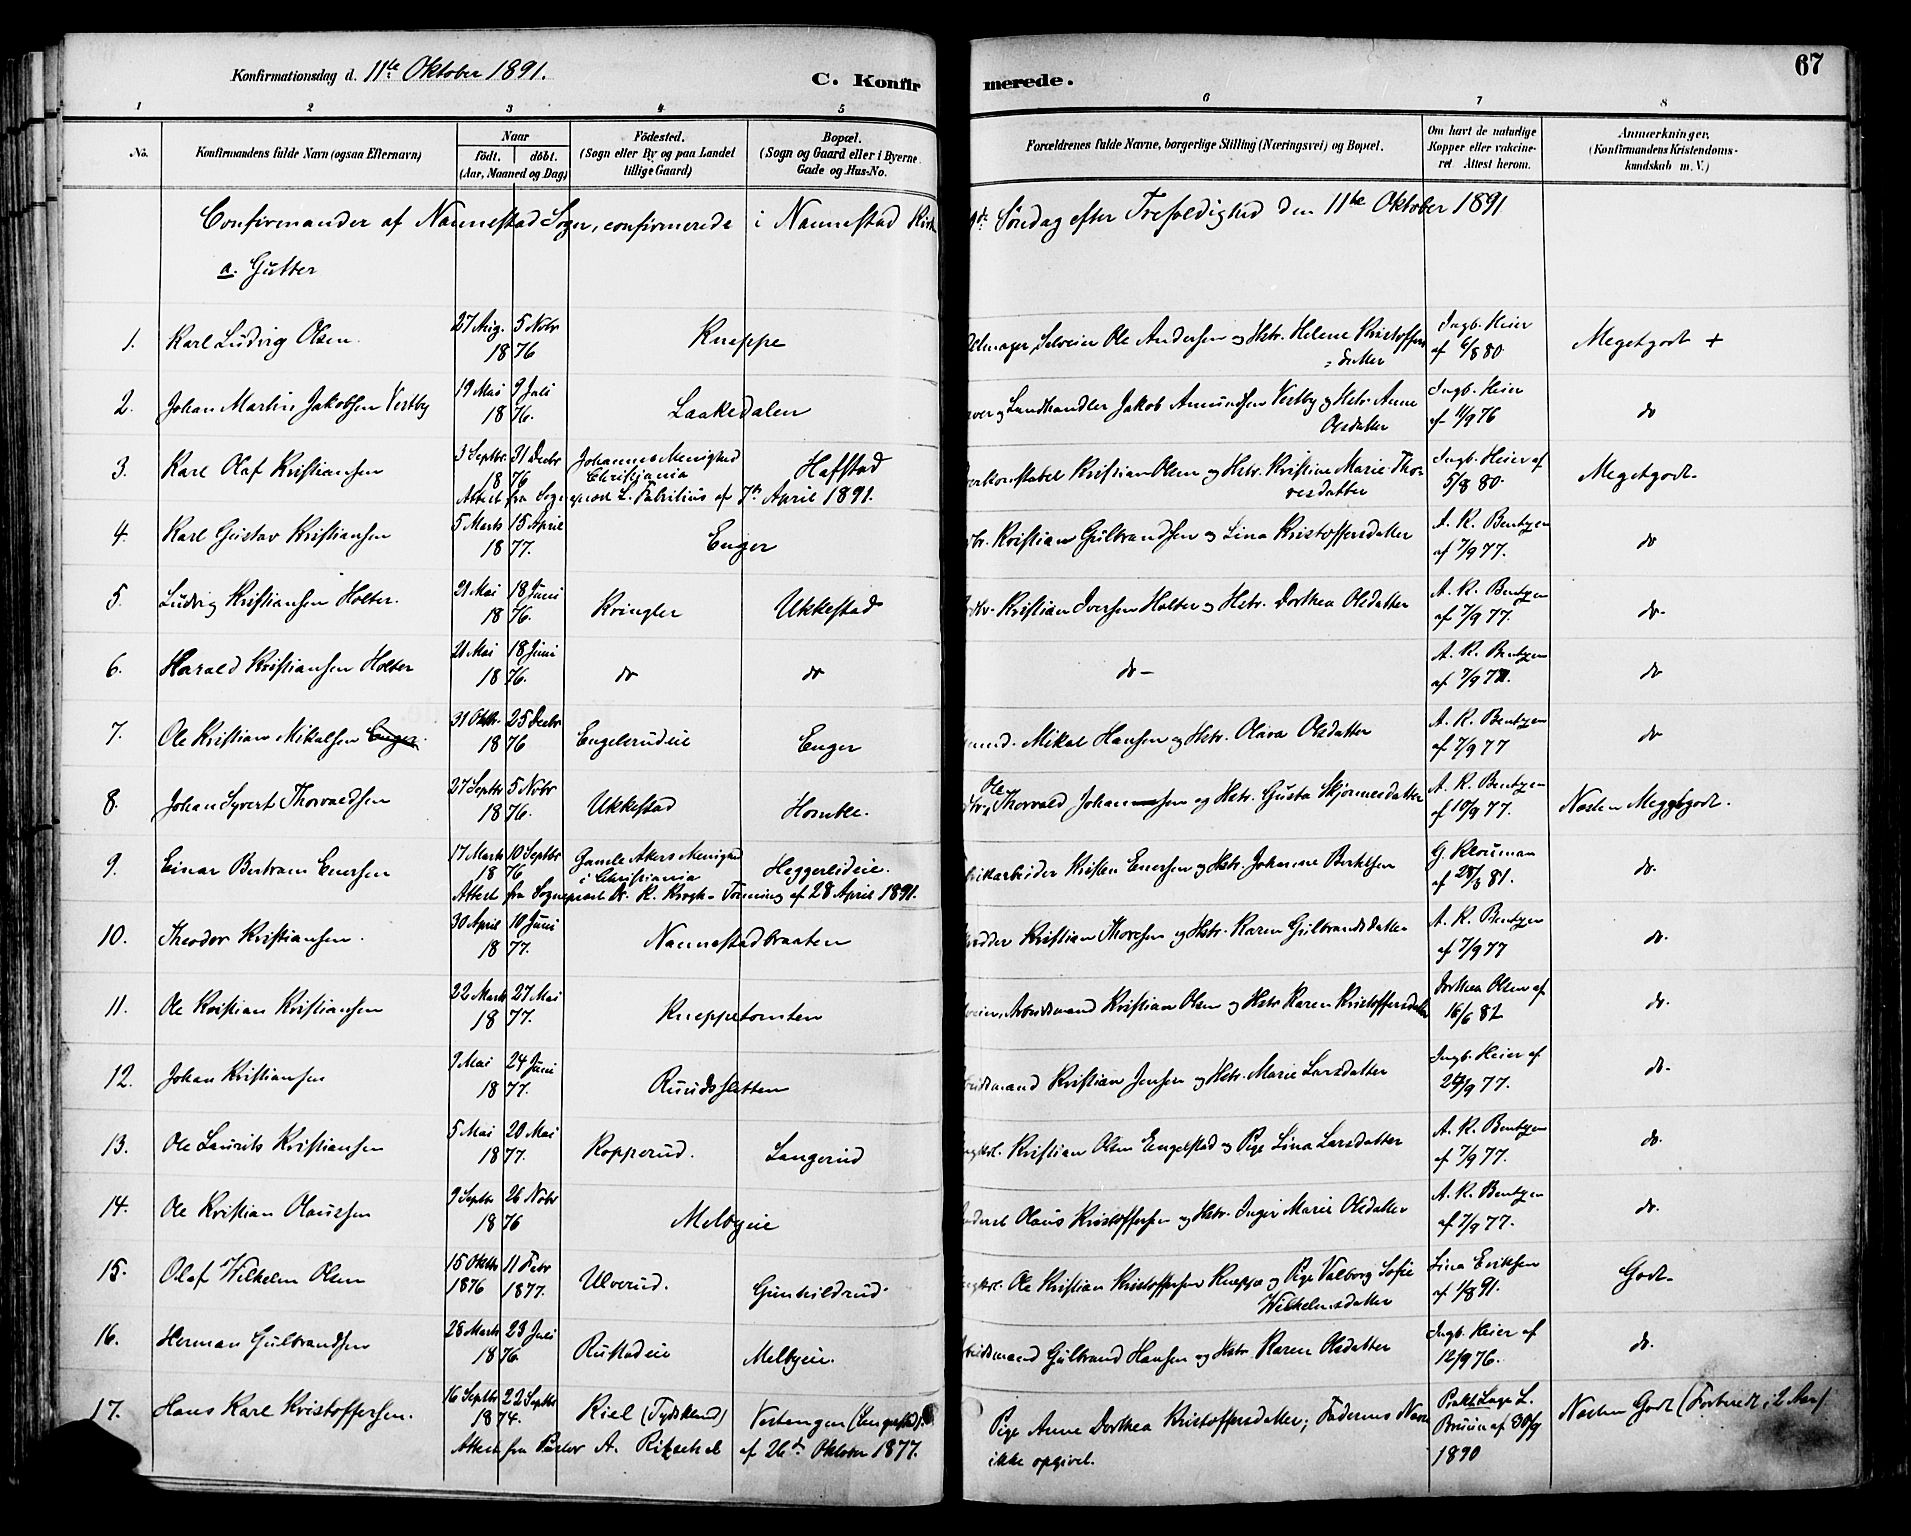 67
Konfirmationsdag d. 11te Oktober 1891.
C. Konfir merede.
1 2 3 4 5 6 7 8
No. Konfirmandens fulde Navn (ogsaa Efternavn) Naar födt. döbt. (Aar, Maaned og Dag) Födested. (Sogn eller By og paa Landet tillige Gaard) Bopæl. (Sogn og Gaard eller i Byerne Gade og Hus-No. Forældrenes fulde Navne, borgerlige Stilling (Næringsvei) og Bopæl. Om havt de naturlige Kopper eller vakcineret. Attest herom. Anmærkninger. (Konfirmandens Kristendomskundskab m. V.)
Confirmander af Nannestad Sogn, confirmerede i Nannestad Kirke Søndag efter Trefoldighed den 11te Oktober 1891
a. Gutter
1. Karl Ludvig Olsen. 27 Aug. 5 Novbr 1876 Kneppe Selveier Ole Andersen og Hstr. Helene Kristoffers=datter Ingb. Heier af 6/8 80. Megetgodt +
2. Johan Martin Jakobsen Vestby 19 Mai 9 Juli 1876. Laakedalen Landhandler Jakob Amundsen Vestby og Hstr. Anne Olsdatter Ingb. Heier af 11/9 76 do
3. Karl Olaf Kristiansen 3 Septbr. 31 Decbr 1876 Johannes Menighed Christiania Hafstad konstabel Kristian Olsen og Hstr. Kristine Marie Thoresdatter Ingb. Heier af 5/8 80. Megetgodt.
Attest fra Sogneprest L. Fabritius af 7de April 1891.
4. Karl Gustav Kristiansen 5 Marts 15 April 1877. Enger Kristian Gulbrandsen og Lina Kristoffersdatter A. K. Bentzen af 7/9 77. do
5. Ludvig Kristiansen Holter. 21 Mai 18 Juni 1876. Kringler Ukkestad Kristian Iversen Holter og Hstr. Dorthea Olsdatter A. K. Bentzen af 7/9 77. do.
6. Harald Kristiansen Holter 21 Mai 18 Juni 1876. do do do - A. K. Bentzen af 7/9 77. do
7. Ole Kristian Mikalsen Enger. 31 Oktbr. 25 Decbr 1876 Engelsrudeie Enger Mikal Hansen og Hstr. Olava Olsdatter A. K. Bentzen af 7/9 77 do
8. Johan Syvert Thorvaldsen 27 Septbr 5 Novbr 1876. Ukkestad Homble. Ole Thorvald Johannesen og Hstr. Gusta Skjønnesdatter A. K. Bentzen af 10/9 77. Næsten Megetgodt.
9. Einar Bertram Enersen 17 Marts 10 Septbr 1876 Gamle Akers Menighed i Christiania Heggerlideie. Kristen Enersen og Hstr. Johanne Bertelsen G. Klouman af 28/8 81. do.
Attest fra Sogneprest Dr. K. Krogh-Tonning af 28 April 1891.
10. Theodor Kristiansen. 30 April 10 Juni 1877. Nannestadbraaten Kristian Thoresen og Hstr. Karen Gulbrandsdatter A. K. Bentzen af 7/9 77 do.
11. Ole Kristian Kristiansen 22 Marts 27 Mai 1877. Kneppetomten Arbeidsmand Kristian Olsen og Hstr Karen Kristoffersdatter Dorthea Olsen af 16/6 82 do.
12. Johan Kristiansen 9 Mai 24 Juni 1877. Ruudssletten Kristian Jensen og Hstr. Marie Larsdatter Ingb. Heier af 24/9 77. do.
13. Ole Laurits Kristiansen 5 Mai 20 Mai 1877. Kopperud. Langerud Kristian Olsen Engelstad og Pige Lina Larsdatter A. K. Bentzen af 7/9 77. do.
14. Ole Kristian Olaussen 9 Septbr 26 Novbr 1876 Melbyeie Olaus Kristoffersen og Hstr. Inger Marie Olsdatter A. K. Bentzen af 7/9 77. do.
15. Olaf Wilhelm Olsen 15 Oktbr 1876 11 Febr 1877. Ulverud. Gunhildrud. Ole Kristian Kristoffersen Kneppe og Pige Valborg Sofie Wilhelmsdatter Lina Eriksen af 1/8 91. Godt.
16. Herman Gulbrandsen 28 Marts 23 Juli 1876. Rustadeie Melbyeie. Gulbrand Hansen og Hstr. Karen Olsdatter Ingb. Heier af 12/9 76. do.
17. Hans Karl Kristoffersen. 16 Septbr 22 Septbr 1874. Kiel (Tydskland) Vestengen (Engelstad). Pige Anne Dorthea Kristoffersdatter; Faderens Navn ikke opgivet. Prakt. Læge L. Bruun af 30/9 1890 Næsten Godt (Forberedt i 2 Aar)
Attest fra Pastor A. af 26de Oktober 1877.